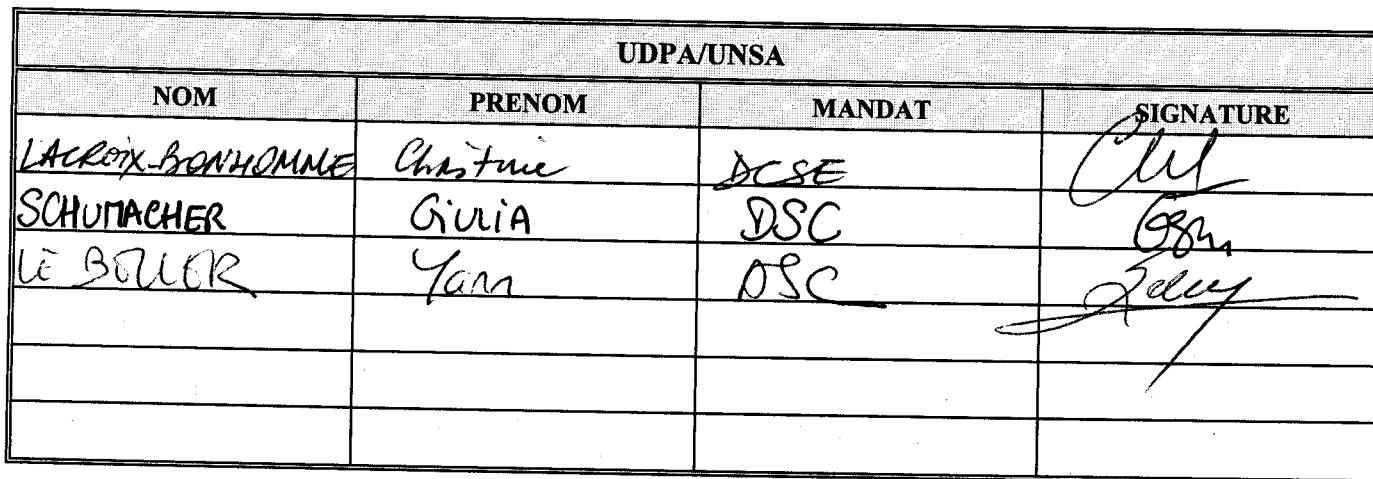 UDPA/UNSA
NOM PRENOM MANDAT SIGNATURE
LACROIX-BONHOMME Christine DCSE
SCHUMACHER GiuliA DSC
LE Yann DSC